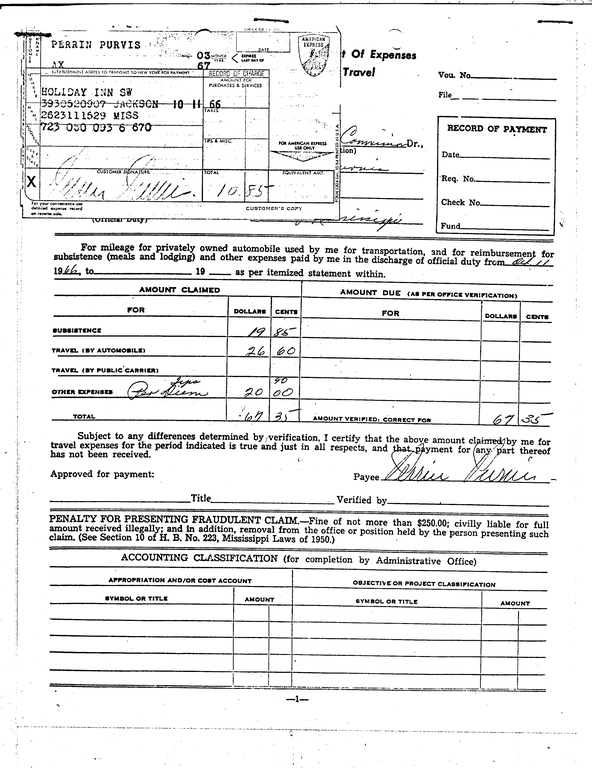 PERRIN PURVIS
AX
03 MONTH YEAR
67
EXPIRES LAST DAY OF
DATE
AMERICAN EXPRESS
ESTABLISHMENT AGREES TO TRANSMIT TO NEW YORK FOR PAYMENT
RECORD OF CHARGE
AMOUNT FOR PURCHASES & SERVICES
HOLIDAY INN SW
3930520907 JACKSON 10 11 66
2623111529 MISS
723 050 093 6 670
TAXES
TIPS & MISC.
FOR AMERICAN EXPRESS USE ONLY
CUSTOMER SIGNATURE
TOTAL
EQUIVALENT AMT.
X Perrin Purvis
10.85
For your convenience use detailed expense record on reverse side.
CUSTOMER'S COPY
t Of Expenses
Travel
Dr.,
tion)
(Official Duty)
Vou. No.
File
RECORD OF PAYMENT
Date
Req. No.
Check No.
Fund
For mileage for privately owned automobile used by me for transportation, and for reimbursement for
subsistence (meals and lodging) and other expenses paid by me in the discharge of official duty from Oct 11
1966, to 19 as per itemized statement within.
AMOUNT CLAIMED
AMOUNT DUE (AS PER OFFICE VERIFICATION)
FOR DOLLARS CENTS FOR DOLLARS CENTS
SUBSISTENCE 19 85
TRAVEL (BY AUTOMOBILE) 26 60
TRAVEL (BY PUBLIC CARRIER)
Tips 90
OTHER EXPENSES Per Diem 20 00
TOTAL 67 35 AMOUNT VERIFIED; CORRECT FOR 67 35
Subject to any differences determined by verification, I certify that the above amount claimed by me for
travel expenses for the period indicated is true and just in all respects, and that payment for any part thereof
has not been received.
Approved for payment: Payee Perrin Purvis
Title Verified by
PENALTY FOR PRESENTING FRAUDULENT CLAIM.—Fine of not more than $250.00; civilly liable for full
amount received illegally; and in addition, removal from the office or position held by the person presenting such
claim. (See Section 10 of H. B. No. 223, Mississippi Laws of 1950.)
ACCOUNTING CLASSIFICATION (for completion by Administrative Office)
APPROPRIATION AND/OR COST ACCOUNT OBJECTIVE OR PROJECT CLASSIFICATION
SYMBOL OR TITLE AMOUNT SYMBOL OR TITLE AMOUNT
—1—